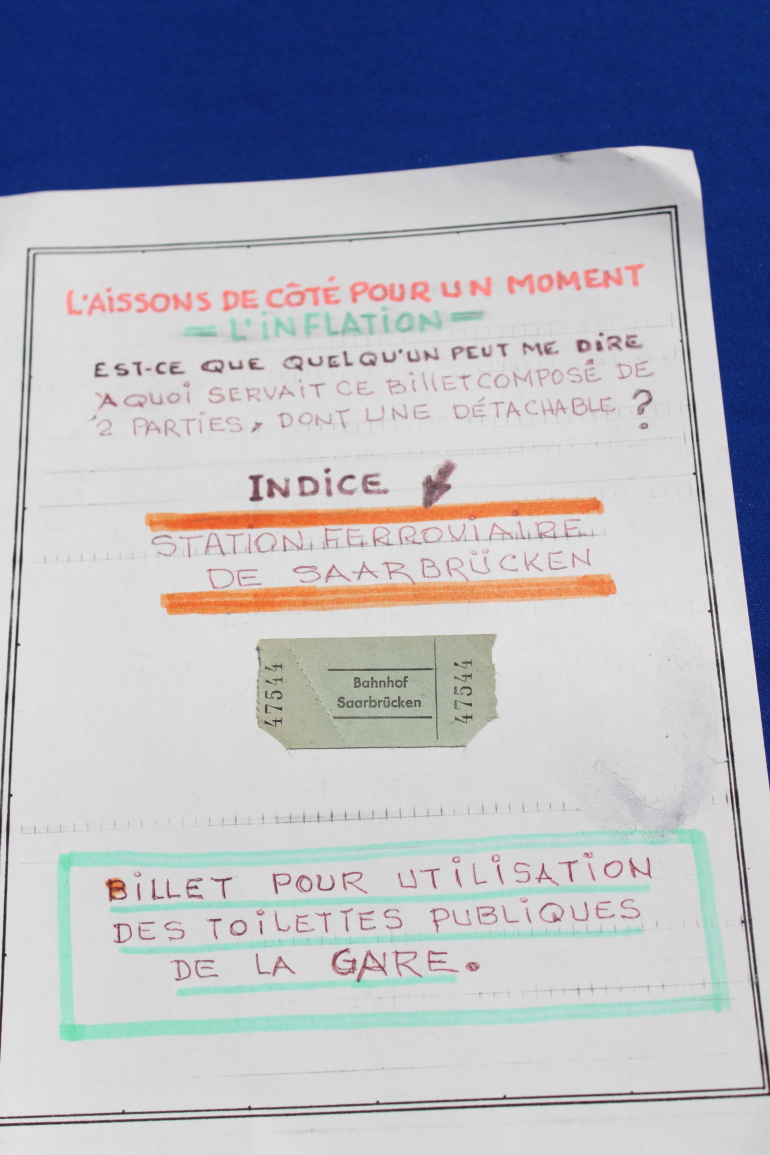 L'AISSONS DE CÔTÉ POUR UN MOMENT
= L'INFLATION =
EST-CE QUE QUELQU'UN PEUT ME DIRE
AQUOI SERVAIT CE BILLET COMPOSÉ DE
2 PARTIES, DONT UNE DÉTACHABLE ?
INDICE
STATION FERROVIAIRE
DE SAARBRÜCKEN
47544
Bahnhof
Saarbrücken
47544
BILLET POUR UTILISATION
DES TOILETTES PUBLIQUES
DE LA GARE.